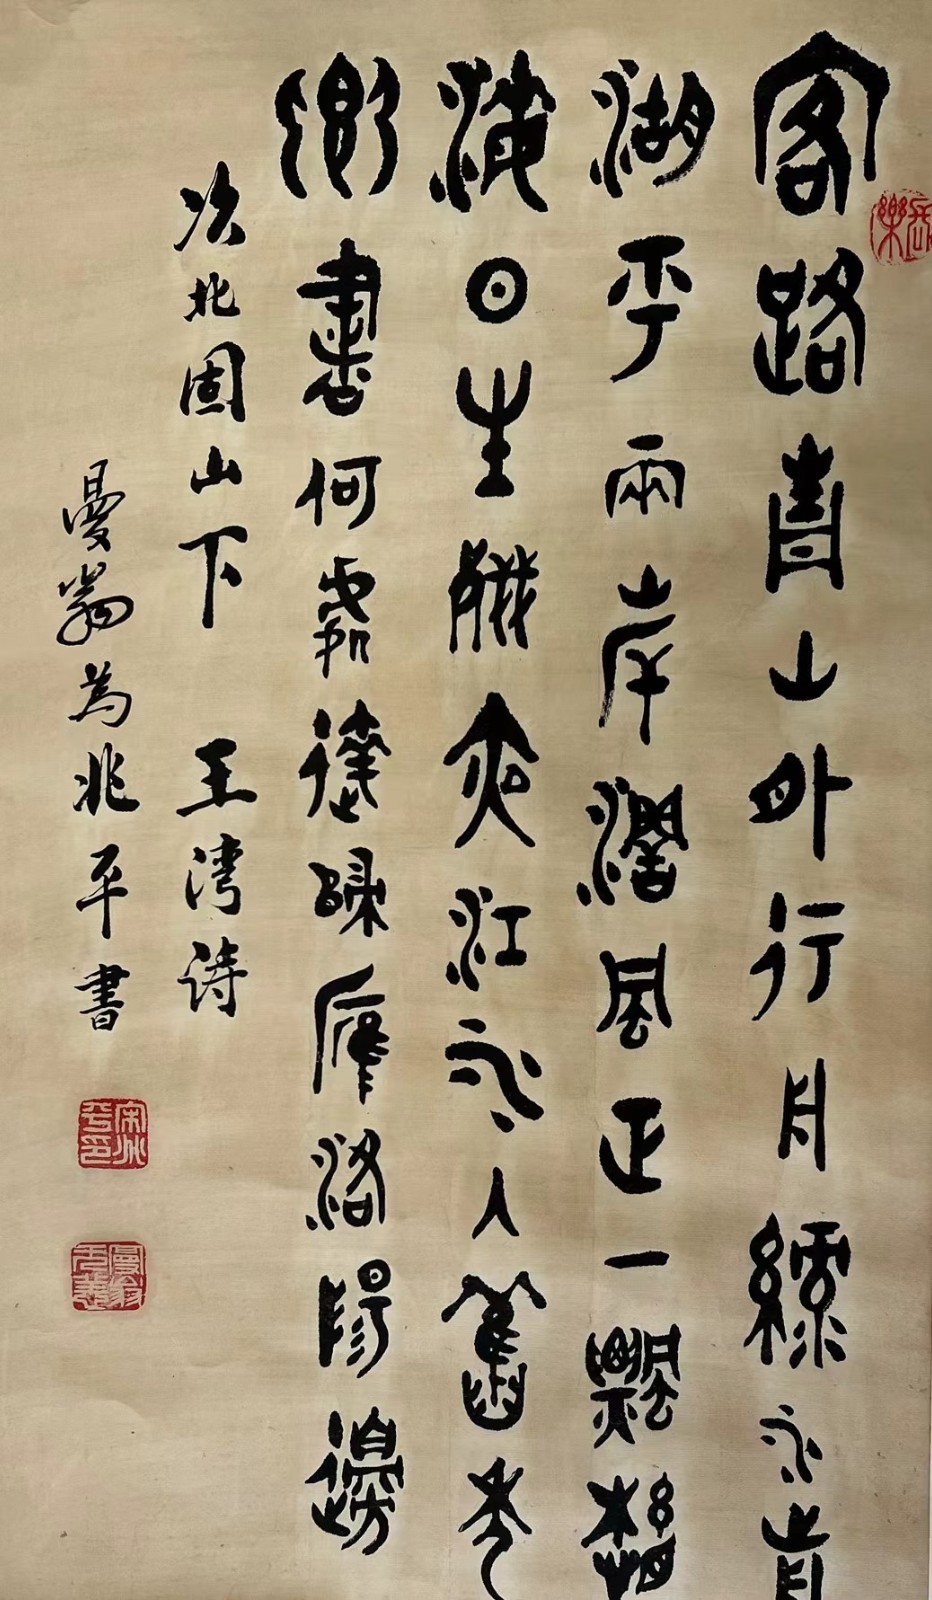 客路青山外行舟綠水前
潮平兩岸濶風正一颿懸
海日生殘夜江水入舊年
鄉書何處達歸雁洛陽邊
次北固山下 王灣詩
曼翁為兆平書